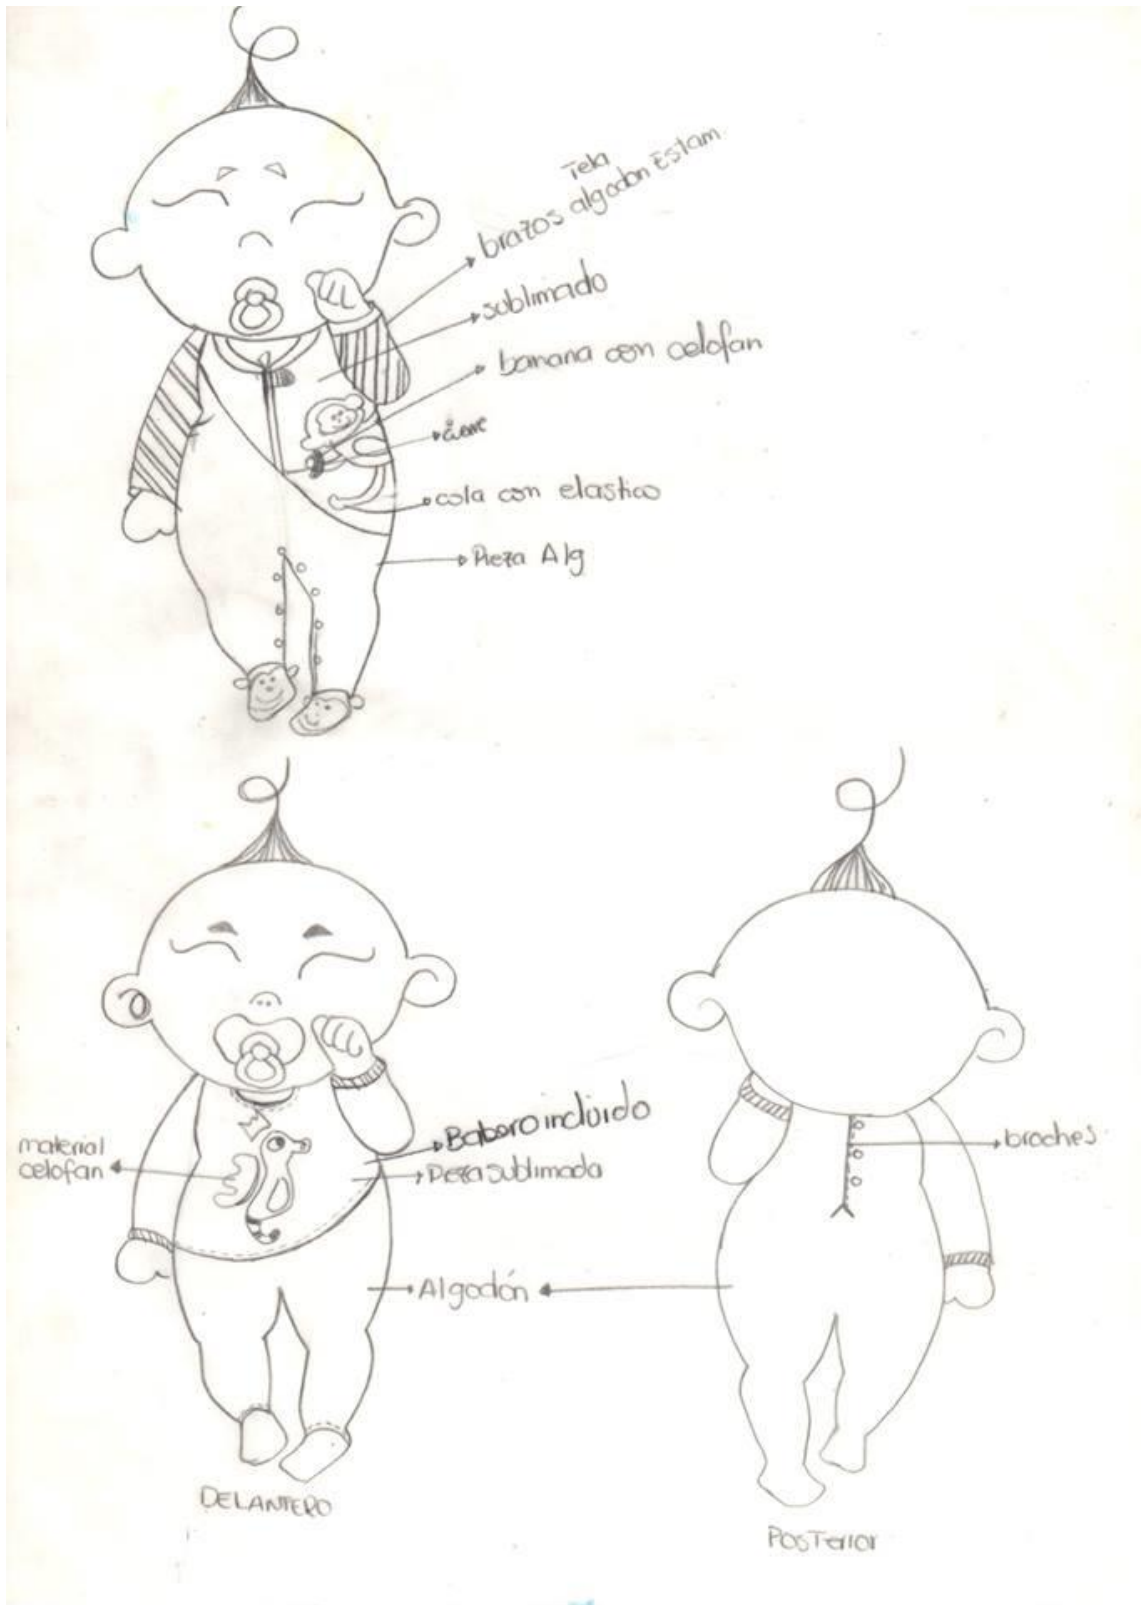 Tela
brazos algodon Estam.
sublimado
banana con celofan
cola con elastico
Pieza Alg
material
celofan
Babero incluido
Pieza sublimada
broches
Algodón
DELANTERO
Posterior